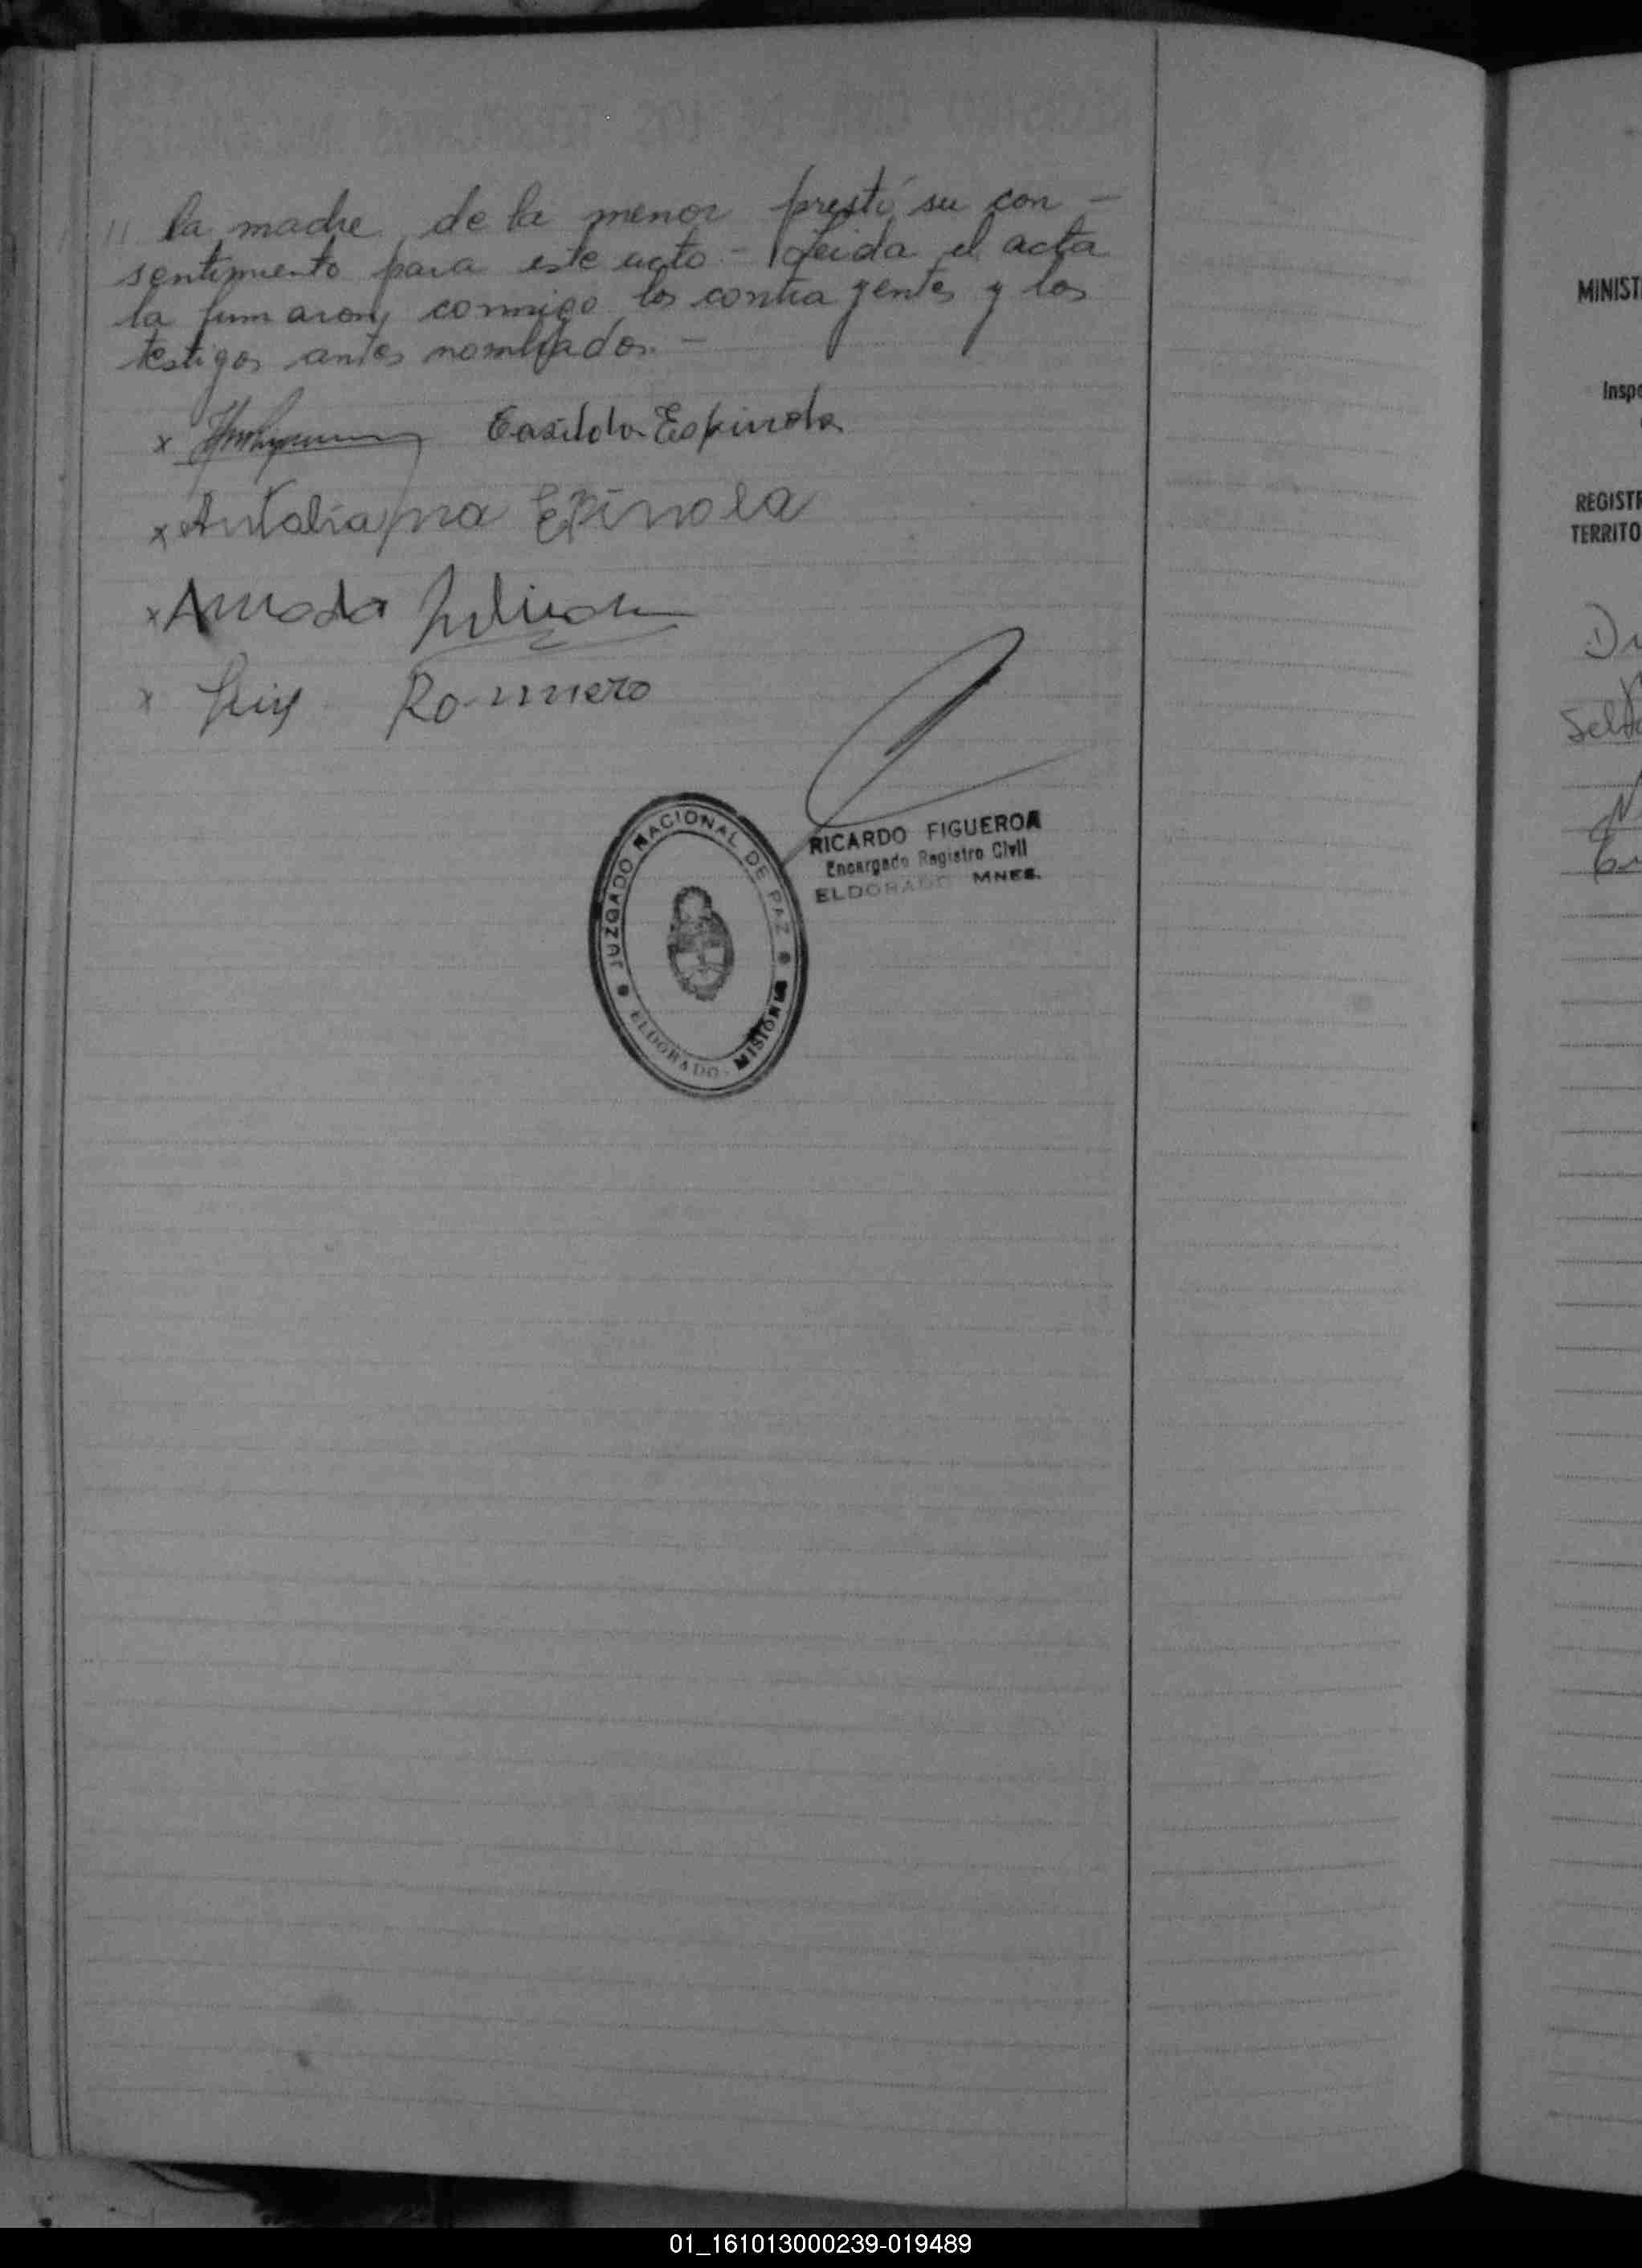 // la madre de la menor prestó su con -
sentimiento para este acto - Leida el acta
la firmaron conmigo los contrayentes y los
testigos antes nombrados. -
x Casilda Espinola
x Espinola
x Amada
x Luis Rommero
JUZGADO NACIONAL DE PAZ
ELDORADO - MISIONES
RICARDO FIGUEROA
Encargado Registro Civil
ELDORADO MNES.
MINIST
Inspe
REGISTR
TERRITO
01_161013000239-019489